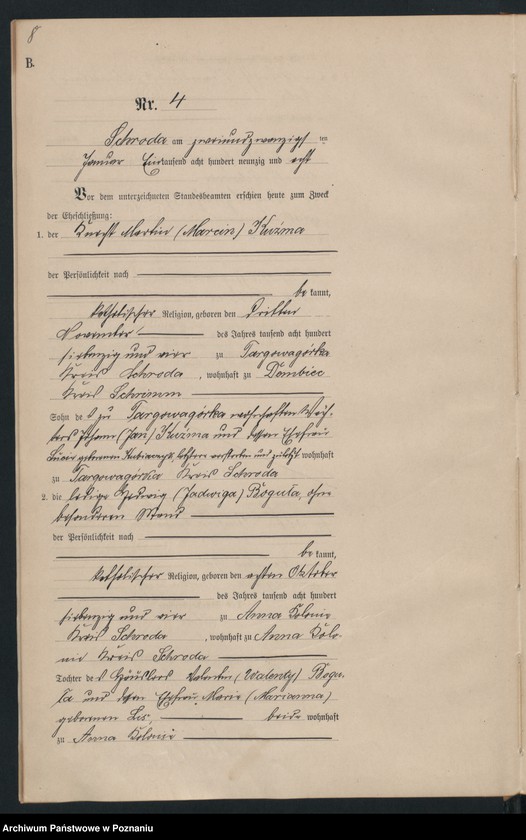 8
B.
Nr. 4
Schroda am zweiundzwanzigsten
Januar Eintausend acht hundert neunzig und acht
Vor dem unterzeichneten Standesbeamten erschien heute zum Zweck
der Eheschließung:
1. der Knecht Martin (Marcin) Kuźma
der Persönlichkeit nach
bekannt,
katholischer Religion, geboren den dritten
November des Jahres tausend acht hundert
siebenzig und vier zu Targowagórka
Kreis Schroda, wohnhaft zu Dombiec
Kreis Schrimm
Sohn des zu Targowagórka wohnhaften
Johann (Jan) Kuźma und dessen Ehefrau
Lucie geborenen letztere verstorben und zuletzt wohnhaft
zu Targowagórka Kreis Schroda
2. die ledige Hedwig (Jadwiga) Boguła, ohne
besonderen Stand
der Persönlichkeit nach
bekannt,
katholischer Religion, geboren den achten Oktober
des Jahres tausend acht hundert
siebenzig und vier zu Anna Kolonie
Kreis Schroda, wohnhaft zu Anna Kolo-
nie Kreis Schroda
Tochter des Häuslers Valentin (Walenty) Bogu-
ła und dessen Ehefrau, Marie (Marianna)
geborenen Lis, beide wohnhaft
zu Anna Kolonie
Archiwum Państwowe w Poznaniu